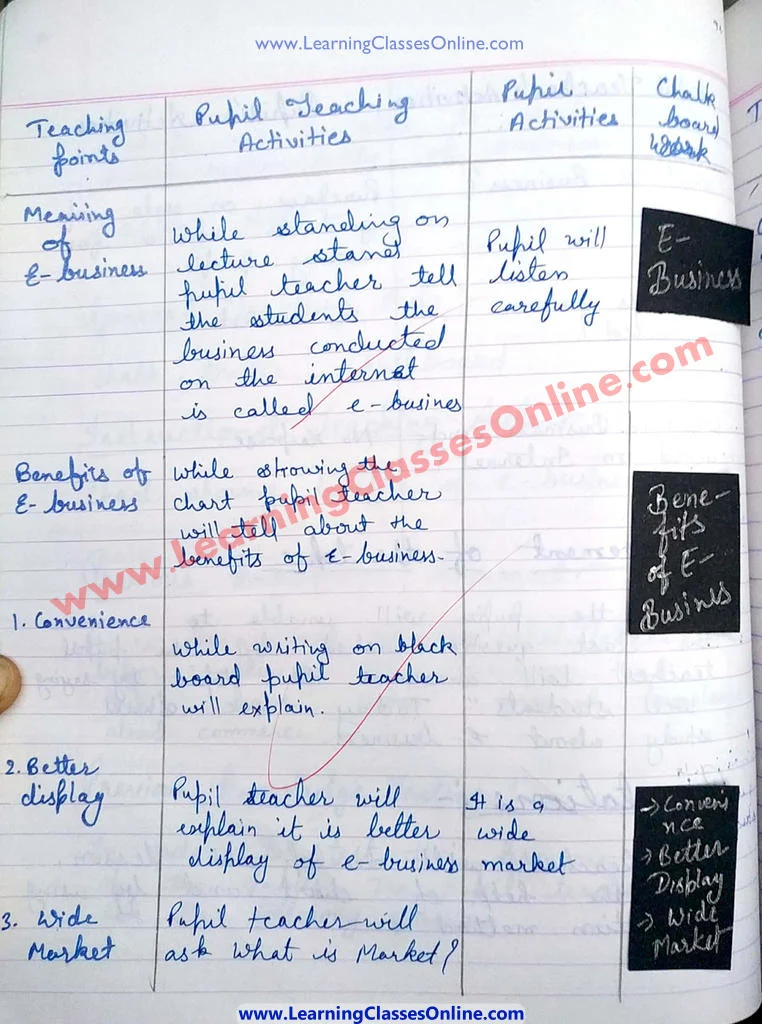 www.LearningClassesOnline.com
Teaching
points
Pupil Teaching
Activities
Pupil
Activities
Chalk
board
work
Meaning
of
E-business
While standing on
lecture stand
pupil teacher tell
the students the
business conducted
on the internet
is called e-busines
Pupil will
listen
carefully
E-
Business
Benefits of
E-business
while showing the
chart pupil teacher
will tell about the
benefits of E-business.
Bene-
fits
of E-
Businss
1. Convenience
while writing on black
board pupil teacher
will explain.
2. Better
display
Pupil teacher will
explain it is better
display of e-business
It is a
wide
market
→ Conveni
nce
→ Better
Display
→ Wide
Market
3. Wide
Market
Pupil teacher will
ask What is Market?
www.LearningClassesOnline.com
www.LearningClassesOnline.com